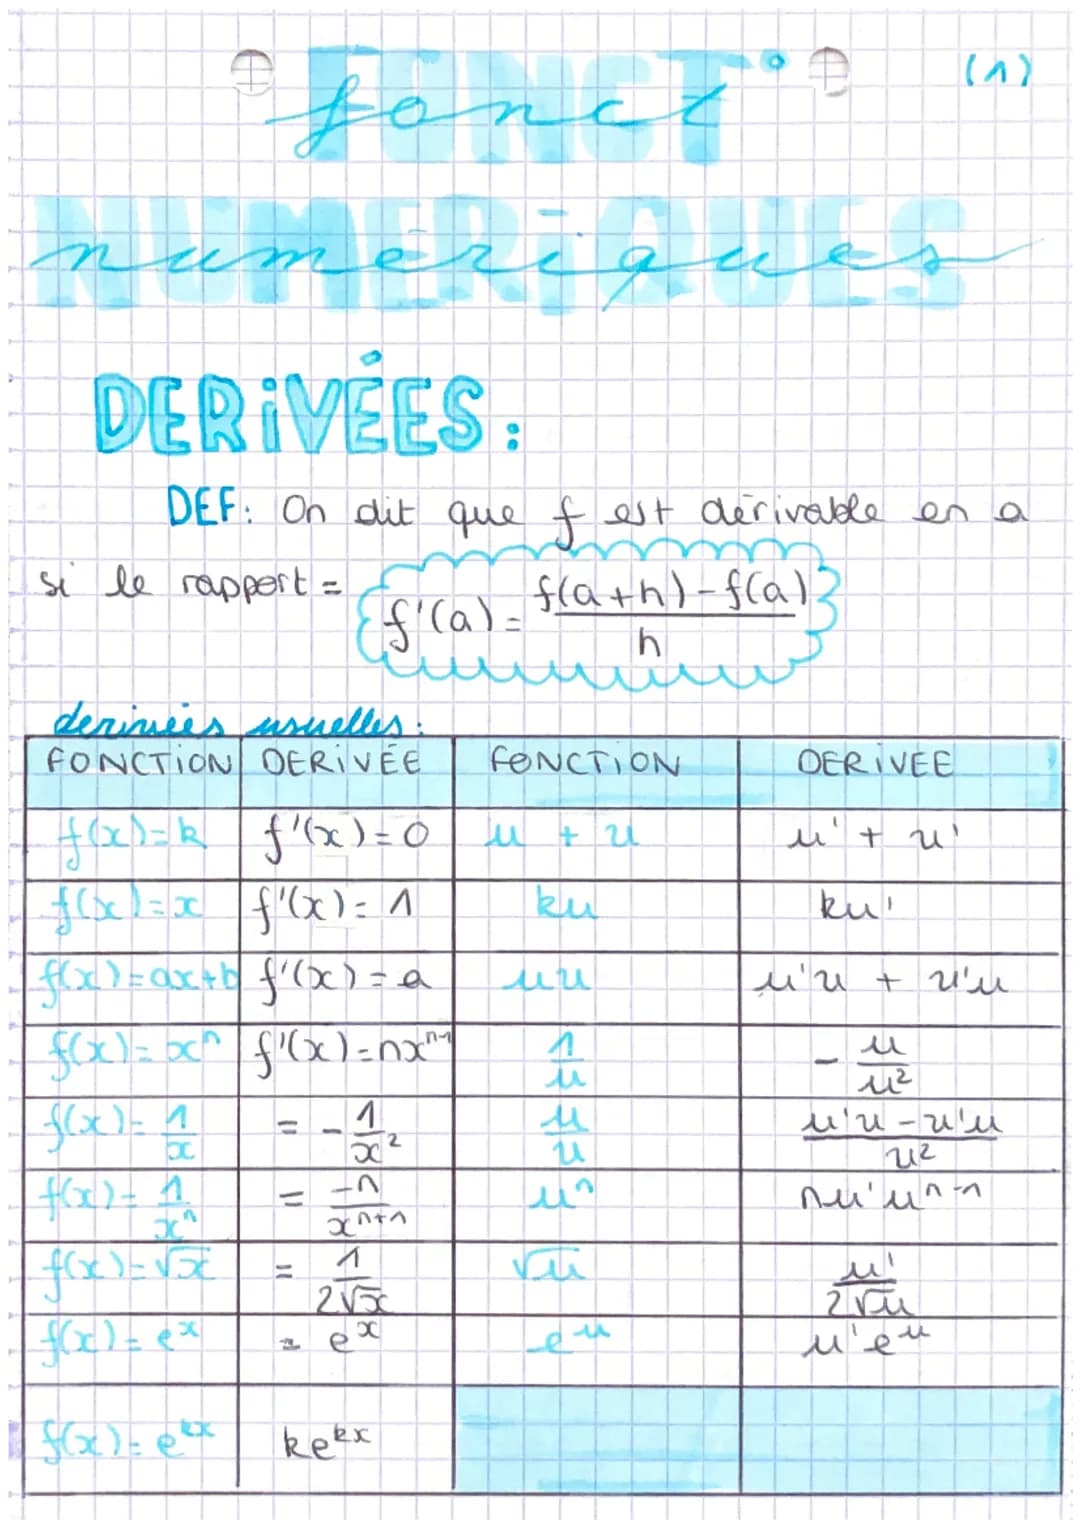 (1)
FONCT°
fonct
NUMERIQUES
numériques
DERIVÉES :
DEF: On dit que f est dérivable en a
si le rapport = f'(a) = f(a+h) - f(a) / h
derivées usuelles :
FONCTION DERIVÉE FONCTION DERIVEE
f(x)=k f'(x)=0 u + v u' + v'
f(x)=x f'(x)=1 ku ku'
f(x)=ax+b f'(x)=a uv u'v + v'u
f(x)=xⁿ f'(x)=nxⁿ⁻¹ 1/u - u/u²
f(x)=1/x = -1/x² u/v u'v - v'u / v²
f(x)=1/xⁿ = -n/xⁿ⁺¹ uⁿ nu'uⁿ⁻¹
f(x)=√x = 1/2√x √u u'/2√u
f(x)=eˣ = eˣ eᵘ u'eᵘ
f(x)=eᵏˣ keᵏˣ